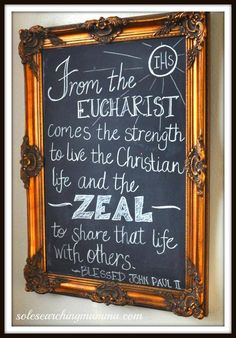 IHS
From the
EUCHARIST
comes the strength
to live the Christian
life and the
ZEAL
to share that life
with others.
~BLESSED JOHN PAUL II
solesearchingmamma.com